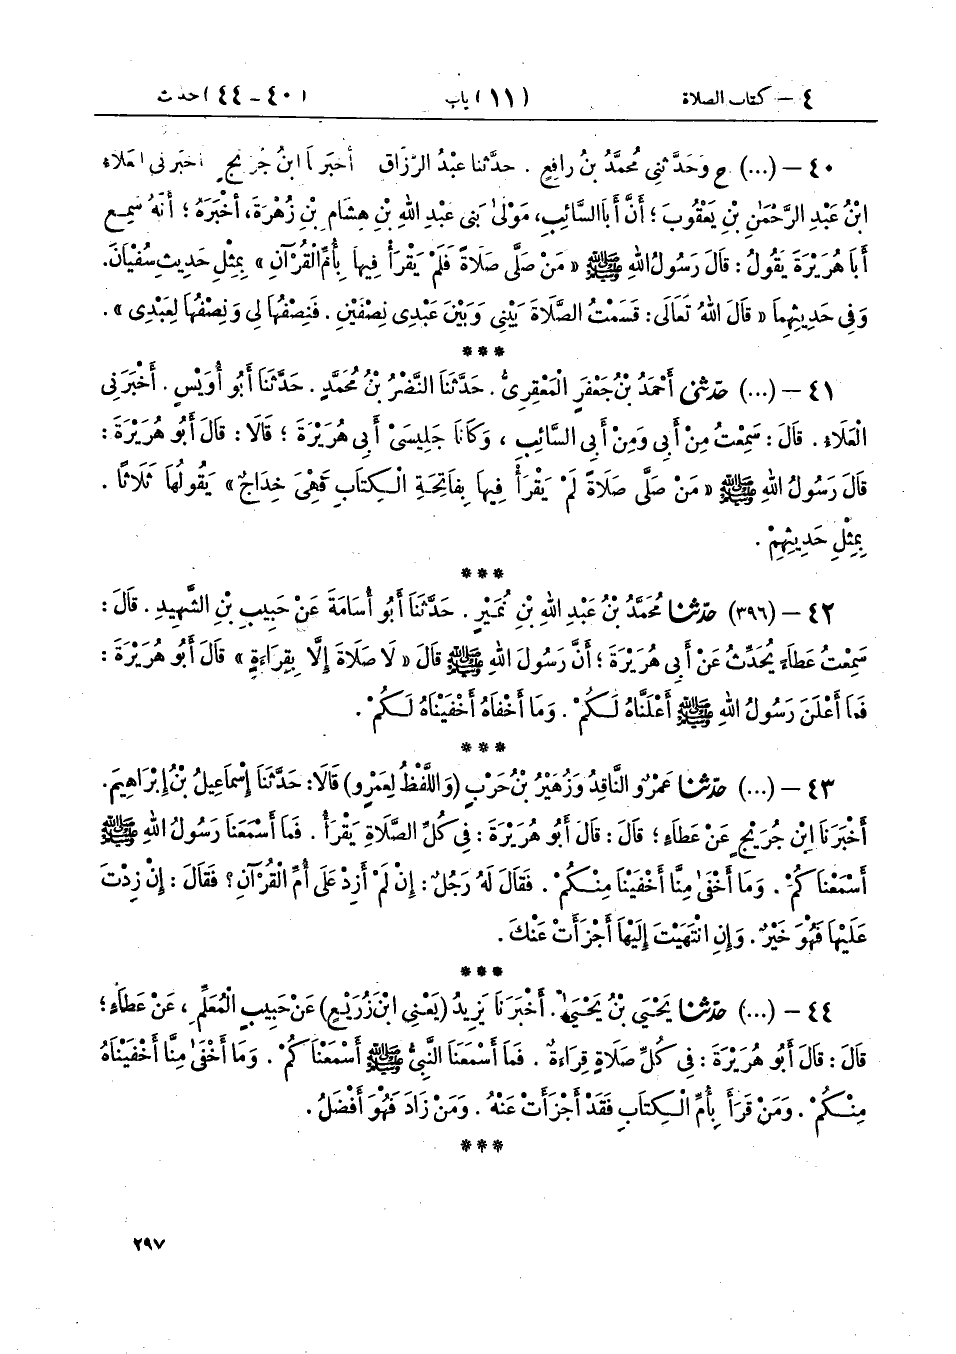 ٤ – كتاب الصلاة (١١) باب (٤٠-٤٤) حديث
٤٠ – (...) ح وَحَدَّثَنِي مُحَمَّدُ بْنُ رَافِعٍ . حَدَّثَنَا عَبْدُ الرَّزَّاقِ أَخْبَرَنَا ابْنُ جُرَيْجٍ أَخْبَرَنِي الْعَلَاءُ
ابْنُ عَبْدِ الرَّحْمَٰنِ بْنِ يَعْقُوبَ ؛ أَنَّ أَبَا السَّائِبِ، مَوْلَىٰ بَنِي عَبْدِ اللهِ بْنِ هِشَامِ بْنِ زُهْرَةَ، أَخْبَرَهُ ؛ أَنَّهُ سَمِعَ
أَبَا هُرَيْرَةَ يَقُولُ : قَالَ رَسُولُ اللهِ ﷺ « مَنْ صَلَّى صَلَاةً فَلَمْ يَقْرَأْ فِيهَا بِأُمِّ الْقُرْآنِ » بِمِثْلِ حَدِيثِ سُفْيَانَ.
وَفِي حَدِيثِهِمَا « قَالَ اللهُ تَعَالَى : قَسَمْتُ الصَّلَاةَ بَيْنِي وَبَيْنَ عَبْدِي نِصْفَيْنِ . فَنِصْفُهَا لِي وَنِصْفُهَا لِعَبْدِي » .
***
٤١ – (...) حَدَّثَنِي أَحْمَدُ بْنُ جَعْفَرٍ الْمَعْقِرِيُّ . حَدَّثَنَا النَّضْرُ بْنُ مُحَمَّدٍ . حَدَّثَنَا أَبُو أُوَيْسٍ . أَخْبَرَنِي
الْعَلَاءُ . قَالَ : سَمِعْتُ مِنْ أَبِي وَمِنْ أَبِي السَّائِبِ ، وَكَانَا جَلِيسَيْ أَبِي هُرَيْرَةَ ؛ قَالَا : قَالَ أَبُو هُرَيْرَةَ :
قَالَ رَسُولُ اللهِ ﷺ « مَنْ صَلَّى صَلَاةً لَمْ يَقْرَأْ فِيهَا بِفَاتِحَةِ الْكِتَابِ فَهْيَ خِدَاجٌ » يَقُولُهَا ثَلَاثًا .
بِمِثْلِ حَدِيثِهِمْ .
***
٤٢ – (٣٩٦) حَدَّثَنَا مُحَمَّدُ بْنُ عَبْدِ اللهِ بْنِ نُمَيْرٍ . حَدَّثَنَا أَبُو أُسَامَةَ عَنْ حَبِيبِ بْنِ الشَّهِيدِ . قَالَ :
سَمِعْتُ عَطَاءً يُحَدِّثُ عَنْ أَبِي هُرَيْرَةَ ؛ أَنَّ رَسُولَ اللهِ ﷺ قَالَ « لَا صَلَاةَ إِلَّا بِقِرَاءَةٍ » قَالَ أَبُو هُرَيْرَةَ :
فَمَا أَعْلَنَ رَسُولُ اللهِ ﷺ أَعْلَنَّاهُ لَكُمْ . وَمَا أَخْفَاهُ أَخْفَيْنَاهُ لَكُمْ .
***
٤٣ – (...) حَدَّثَنَا عَمْرٌو النَّاقِدُ وَزُهَيْرُ بْنُ حَرْبٍ (وَاللَّفْظُ لِعَمْرٍو) قَالَا : حَدَّثَنَا إِسْمَاعِيلُ بْنُ إِبْرَاهِيمَ.
أَخْبَرَنَا ابْنُ جُرَيْجٍ عَنْ عَطَاءٍ ؛ قَالَ : قَالَ أَبُو هُرَيْرَةَ : فِي كُلِّ الصَّلَاةِ يَقْرَأُ . فَمَا أَسْمَعَنَا رَسُولُ اللهِ ﷺ
أَسْمَعْنَاكُمْ . وَمَا أَخْفَىٰ مِنَّا أَخْفَيْنَا مِنْكُمْ . فَقَالَ لَهُ رَجُلٌ : إِنْ لَمْ أَزِدْ عَلَى أُمِّ الْقُرْآنِ ؟ فَقَالَ : إِنْ زِدْتَ
عَلَيْهَا فَهُوَ خَيْرٌ . وَإِنِ انْتَهَيْتَ إِلَيْهَا أَجْزَأَتْ عَنْكَ .
***
٤٤ – (...) حَدَّثَنَا يَحْيَىٰ بْنُ يَحْيَىٰ . أَخْبَرَنَا يَزِيدُ (يَعْنِي ابْنَ زُرَيْعٍ) عَنْ حَبِيبٍ الْمُعَلِّمِ ، عَنْ عَطَاءٍ ؛
قَالَ : قَالَ أَبُو هُرَيْرَةَ : فِي كُلِّ صَلَاةٍ قِرَاءَةٌ . فَمَا أَسْمَعَنَا النَّبِيُّ ﷺ أَسْمَعْنَاكُمْ . وَمَا أَخْفَىٰ مِنَّا أَخْفَيْنَاهُ
مِنْكُمْ . وَمَنْ قَرَأَ بِأُمِّ الْكِتَابِ فَقَدْ أَجْزَأَتْ عَنْهُ . وَمَنْ زَادَ فَهُوَ أَفْضَلُ .
***
٢٩٧